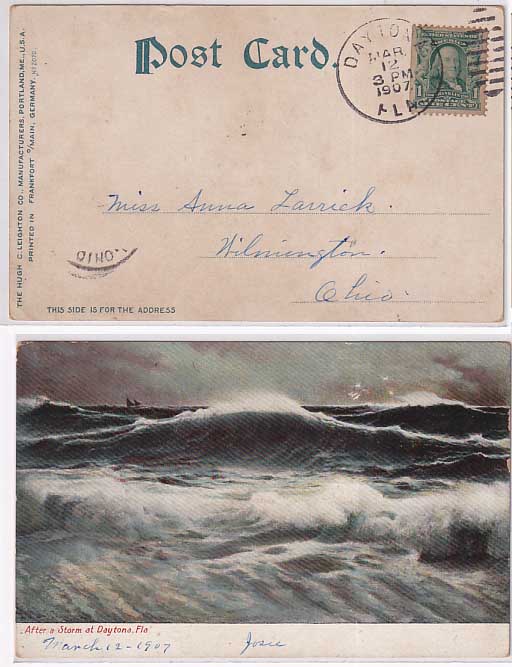 Post Card.
DAYTONA
MAR.
12
3 PM
1907
FLA
THE HUGH C. LEIGHTON CO., MANUFACTURERS, PORTLAND, ME., U.S.A.
PRINTED IN FRANKFORT o/MAIN, GERMANY.
Miss Anna Larrick.
Wilmington.
Ohio.
OHIO
THIS SIDE IS FOR THE ADDRESS
After a Storm at Daytona, Fla
March 12-1907 Josie